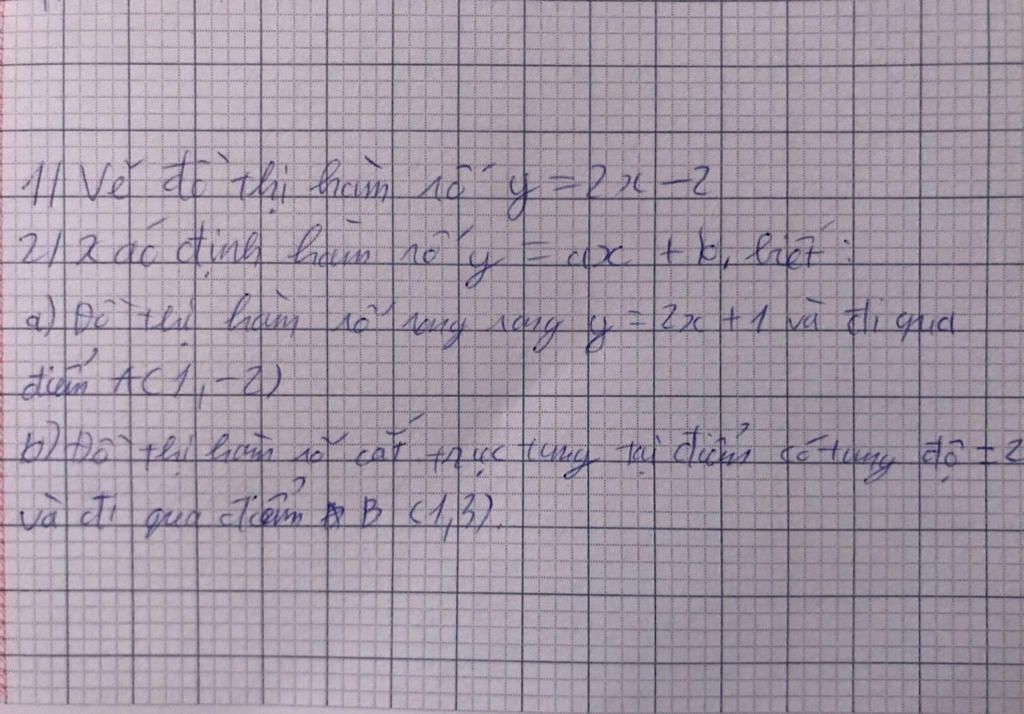 1// Vẽ đồ thị hàm số y = 2x - 2
2/ Xác định hàm số y = ax + b, biết :
a) Đồ thị hàm số song song y = 2x + 1 và đi qua
điểm A(1,-2)
b) Đồ thị hàm số cắt trục tung tại điểm có tung độ = 2
và đi qua điểm B (1,3).